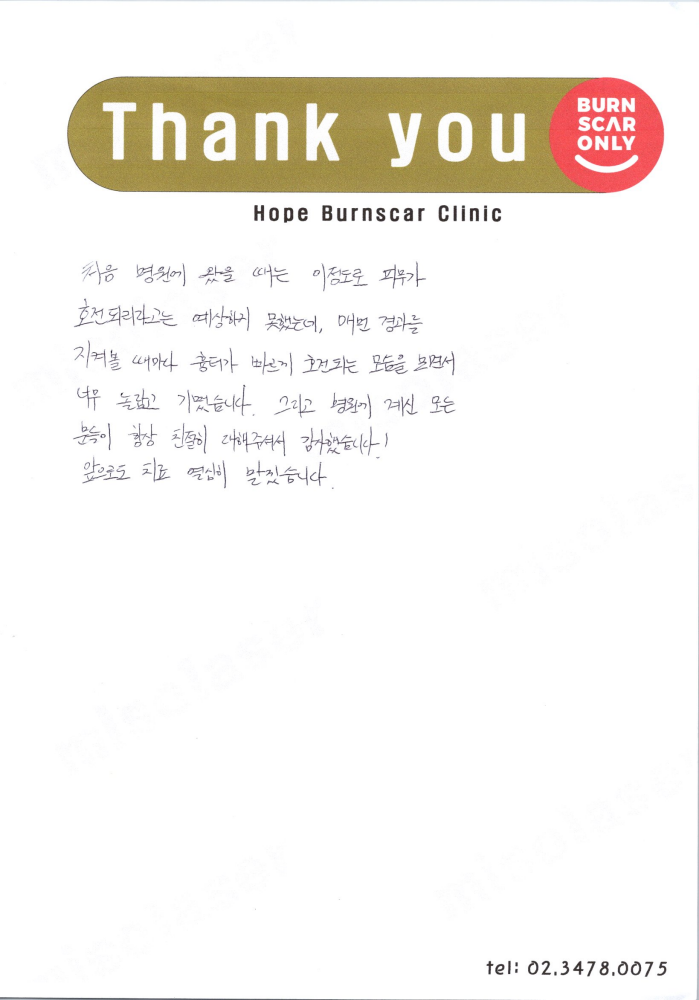 Thank you
BURN
SCAR
ONLY
Hope Burnscar Clinic
처음 병원에 왔을 때는 이정도로 피부가
호전되리라고는 예상하지 못했는데, 매번 경과를
지켜볼 때마다 흉터가 빠르게 호전되는 모습을 보면서
너무 놀랍고 기뻤습니다. 그리고 병원에 계신 모든
분들이 항상 친절히 대해주셔서 감사했습니다!
앞으로도 치료 열심히 받겠습니다.
misolaser
misolaser
misolaser
misolaser
tel: 02.3478.0075